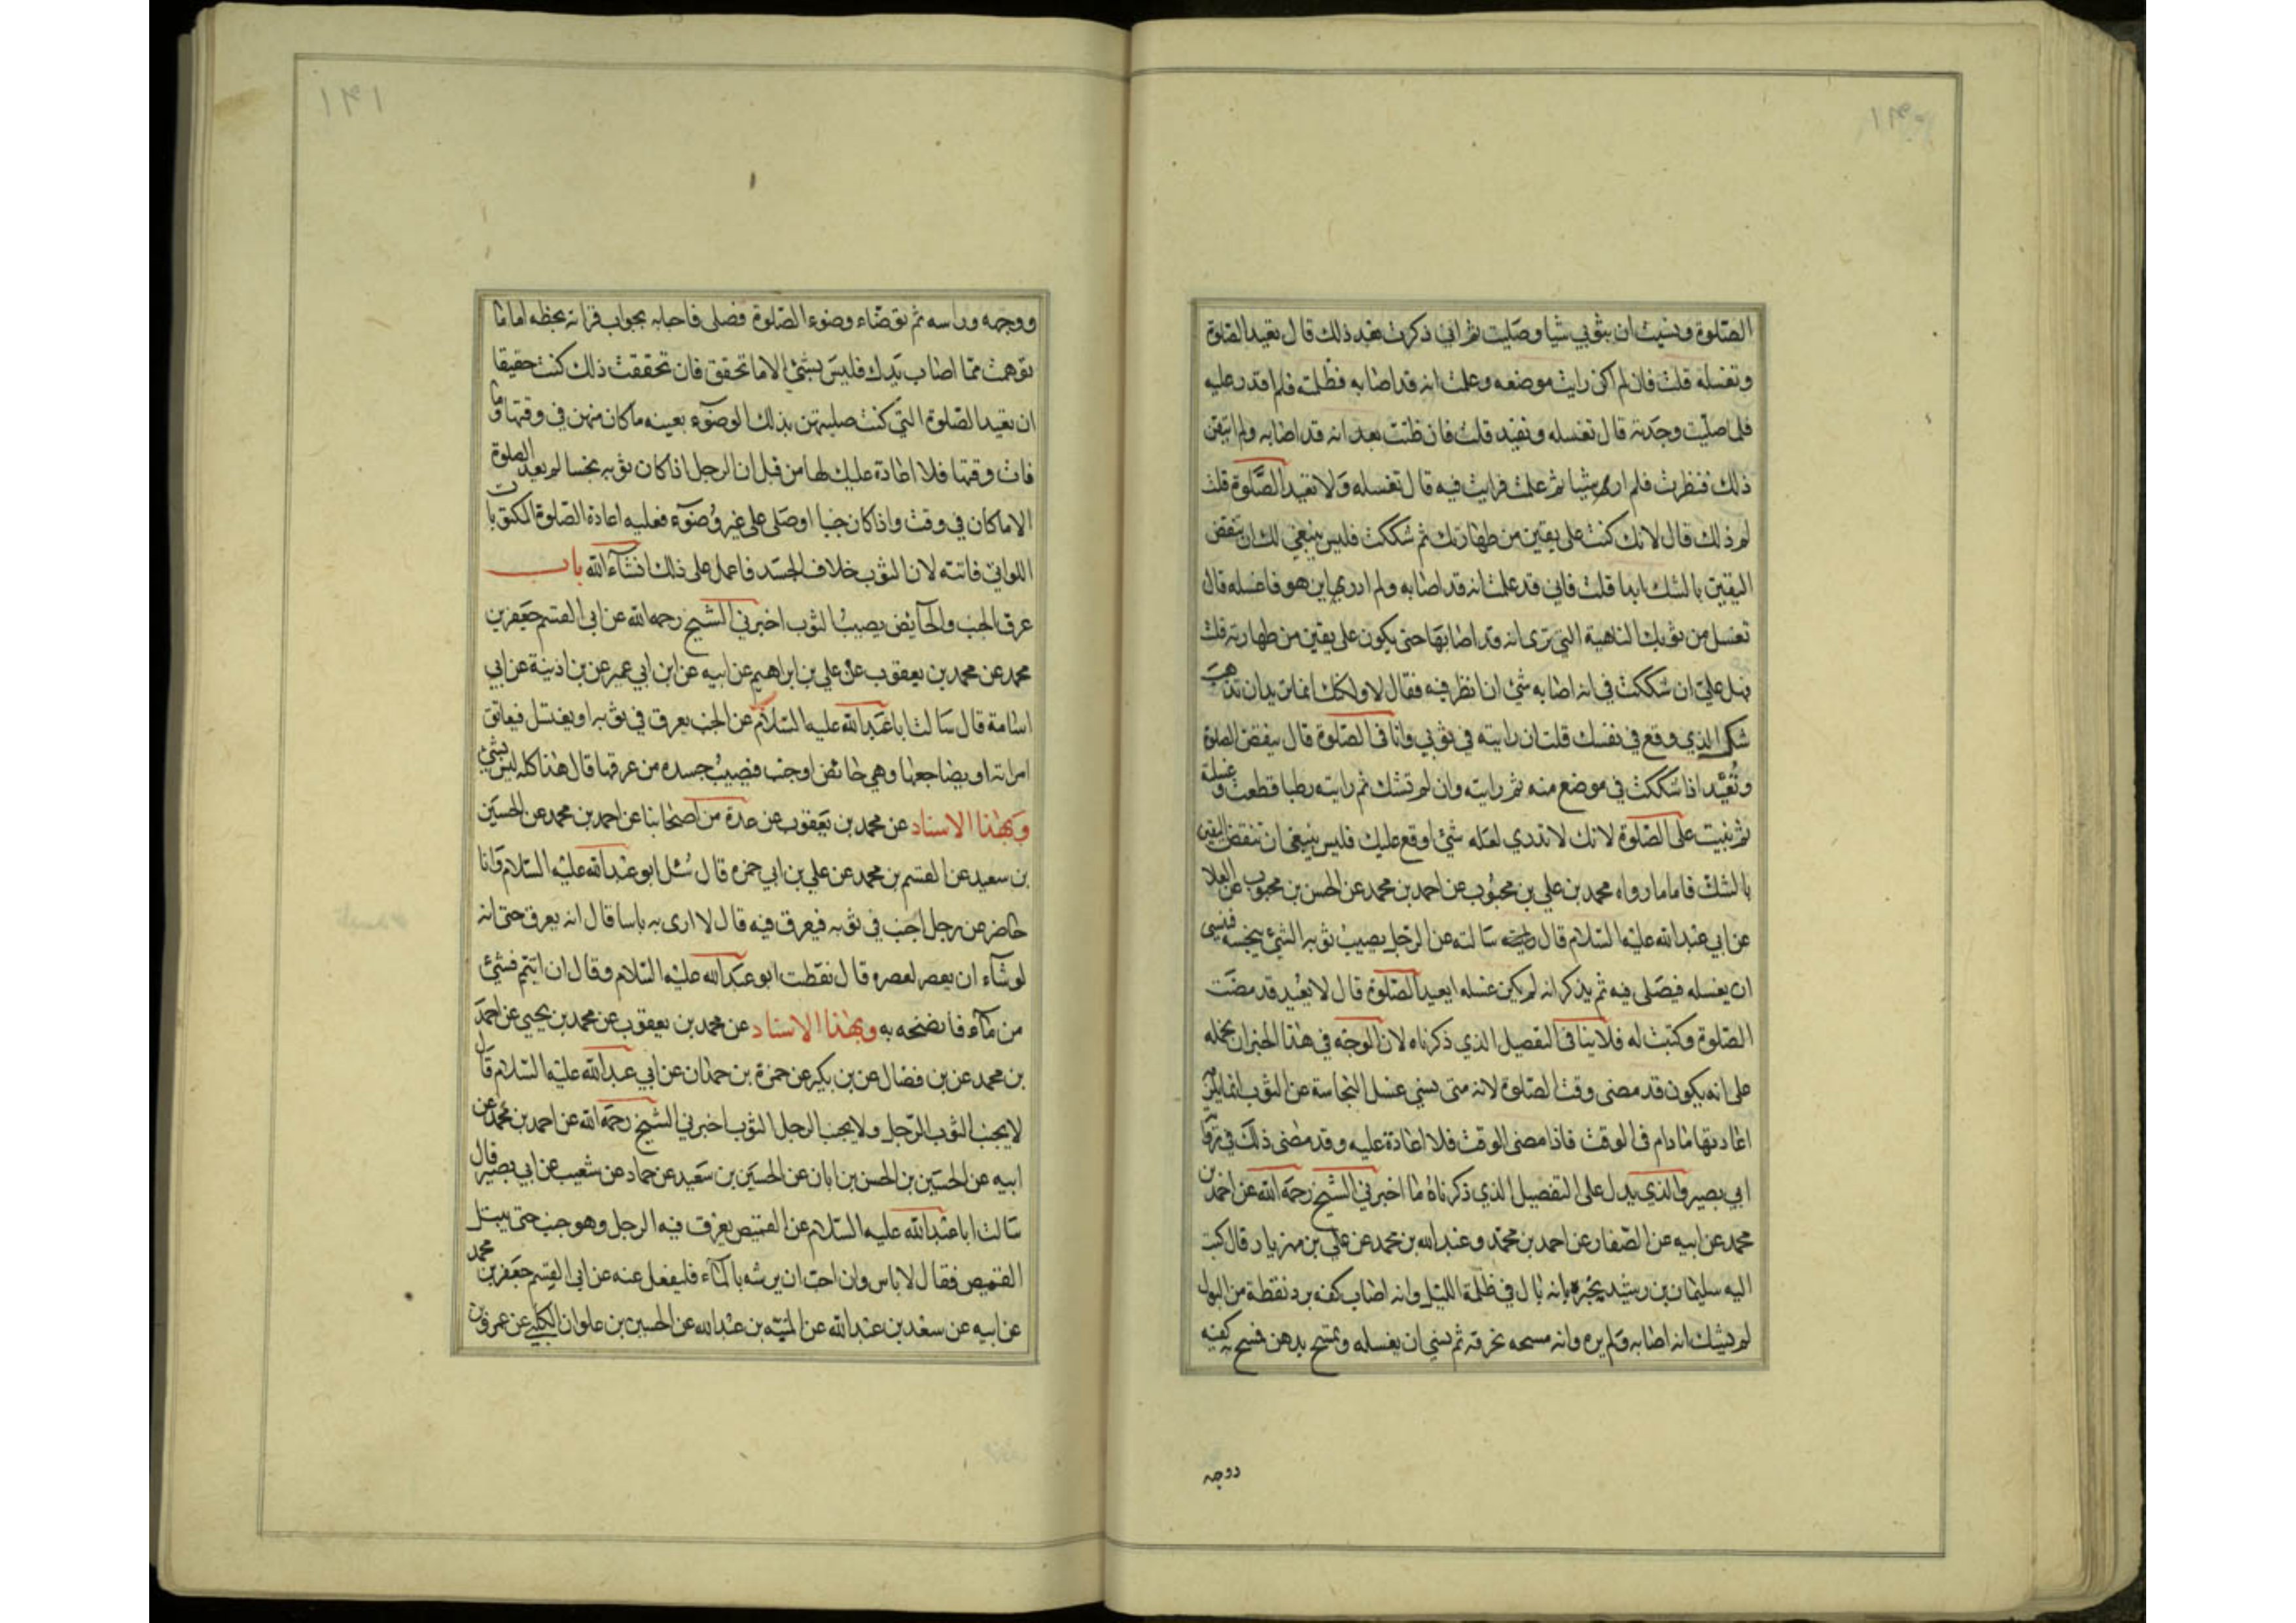 الصّلوة ونسيت ان بثوبي شيا وصلّيت ثم اني ذكرت بعد ذلك قال تعيد الصلوة
وتغسله قلت فان لم اكن رايت موضعه وعلمت انه قد اصابه فطلبته فلم اقدر عليه
فلما صلّيت وجدته قال تغسله وتعيد قلت فان ظننت بعد انه قد اصابه ولم اتيقن
ذلك فنظرت فلم ار شيا ثم علمت فرايت فيه قال تغسله ولا تعيد الصّلوة قلت
لم ذلك قال لانك كنت على يقين من طهارتك ثم شككت فليس ينبغي لك ان تنقض
اليقين بالشك ابدا قلت فاني قد علمت انه قد اصابه ولم ادر اين هو فاغسله قال
تغسل من ثوبك الناحية التي ترى انه قد اصابها حتى يكون على يقين من طهارته قلت
فهل علي ان شككت في انه اصابه شئ ان انظر فيه فقال لا ولكنك انما تريد ان تذهب
شك الذي وقع في نفسك قلت ان رايته في ثوبي وانا في الصّلوة قال ينقض الصلوة
وتُعيد اذا شككت في موضع منه ثم رايته وان لم تشك ثم رايته رطبا قطعت وغسلته
ثم بنيت على الصّلوة لانك لا تدري لعله شئ اوقع عليك فليس ينبغي ان تنقض اليقين
بالشك فاما ما رواه محمد بن علي بن محبوب عن احمد بن محمد عن الحسن بن محبوب عن العلا
عن ابي عبد الله عليه السّلام قال سالته عن الرّجل يصيب ثوبه الشئ ينجسه فنسى
ان يغسله فيصّلى فيه ثم يذكر انه لم يكن غسله ايعيد الصّلوة قال لا يعيد قد مضت
الصّلوة وكتبت له فلا ينافى التفصيل الذي ذكرناه لان الوجه في هذا الخبر ان نحمله
على انه يكون قد مضى وقت الصّلوة لانه متى نسي غسل النجاسة عن الثوب انما يلزمه
اعادتها ما دام في الوقت فاذا مضى الوقت فلا اعادة عليه وقد مضى ذلك في رواية
ابي بصير والذي يدل على التفصيل الذي ذكرناه ما اخبرني الشيخ رحمه الله عن احمد بن
محمد عن ابيه عن الصّفار عن احمد بن محمّد وعبد الله بن محمد عن علي بن مهزيار قال كتب
اليه سليمان بن رشيد يخبره انه بال في ظلمة الليل وانه اصاب كفه برد نقطة من البول
لم يشك انه اصابه ولم يره وانه مسحه بخرقة ثم نسي ان يغسله وتمسّح بدهن فمسح به كفيه
ووجهه
ووجهه وراسه ثم توضّاء وضوء الصّلوة فصلى فاجابه بجواب قراته بخطه اما ما
توهمت ممّا اصاب يدك فليس بشئ الا ما تحقق فان تحققت ذلك كنت حقيقا
ان تعيد الصّلوة التي كنت صليتهن بذلك الوضوء بعينه ما كان منهن في وقتها وما
فات وقتها فلا اعادة عليك لها من قبل ان الرجل اذا كان ثوبه نجسا لم يعد الصلوة
الا ما كان في وقت واذا كان جنبا او صلى على غير وُضوء فعليه اعادة الصّلوة المكتوبات
اللواتي فاتته لان الثوب خلاف الجسد فاعمل على ذلك انشاء الله باب
عرق الجنب والحائض يصيب الثوب اخبرني الشيخ رحمه الله عن ابي القسم جعفر بن
محمد عن محمد بن يعقوب عن علي بن ابراهيم عن ابيه عن ابن ابي عمير عن بن اذينة عن ابي
اسامة قال سالت ابا عبد الله عليه السّلام عن الجنب يعرق في ثوبه او يغتسل فيعانق
امراته او يضاجعها وهي حائض او جنب فيصيب جسده من عرقها قال هذا كله ليس بشئ
وبهذا الاسناد عن محمد بن يعقوب عن عدة من اصحابنا عن احمد بن محمد عن الحسين
بن سعيد عن القسم بن محمد عن علي بن ابي حمزه قال سُئل ابو عبد الله عليه السّلام وانا
حاضر عن رجل اجنب في ثوبه فيعرق فيه قال لا ارى به باسا قال انه يعرق حتى انه
لو شاء ان يعصر لعصره قال نقطت ابو عبد الله عليه السّلام وقال ان ابيتم فشئ
من ماء فانضحه به وبهذا الاسناد عن محمد بن يعقوب عن محمد بن يحيى عن احمد
بن محمد عن بن فضال عن بن بكير عن حمزة بن حمران عن ابي عبد الله عليه السّلام قال
لا يجنب الثوب الرّجل ولا يجنب الرجل الثوب اخبرني الشيخ رحمه الله عن احمد بن محمد عن
ابيه عن الحسين بن الحسن بن ابان عن الحسين بن سعيد عن حماد عن شعيب عن ابي بصير قال
سالت ابا عبد الله عليه السّلام عن القميص يعرق فيه الرجل وهو جنب حتى يبتل
القميص فقال لا باس وان احب ان يرشه بالماء فليفعل عنه عن ابي القسم جعفر بن محمد
عن ابيه عن سعد بن عبد الله عن المنبّه بن عبد الله عن الحسين بن علوان الكلبي عن عمرو بن